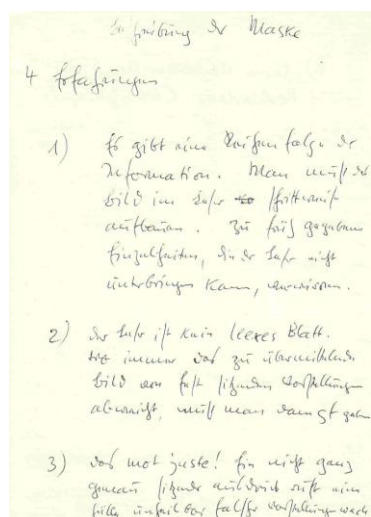 Beschreibung der Maske
4 Erfahrungen
1) Es gibt eine Reihenfolge der
Information. Man muß das
Bild im Leser schrittweise
aufbauen. Zu früh gegebene
Einzelheiten, die der Leser nicht
unterbringen kann, verwirren.
2) Der Leser ist kein leeres Blatt.
wo immer das zu übermittelnde
Bild von fest sitzenden Vorstellungen
abweicht, muß man darauf
3) Das mot juste! Ein nicht ganz
genau sitzender Ausdruck ruft eine
Fülle falscher Vorstellungen wach